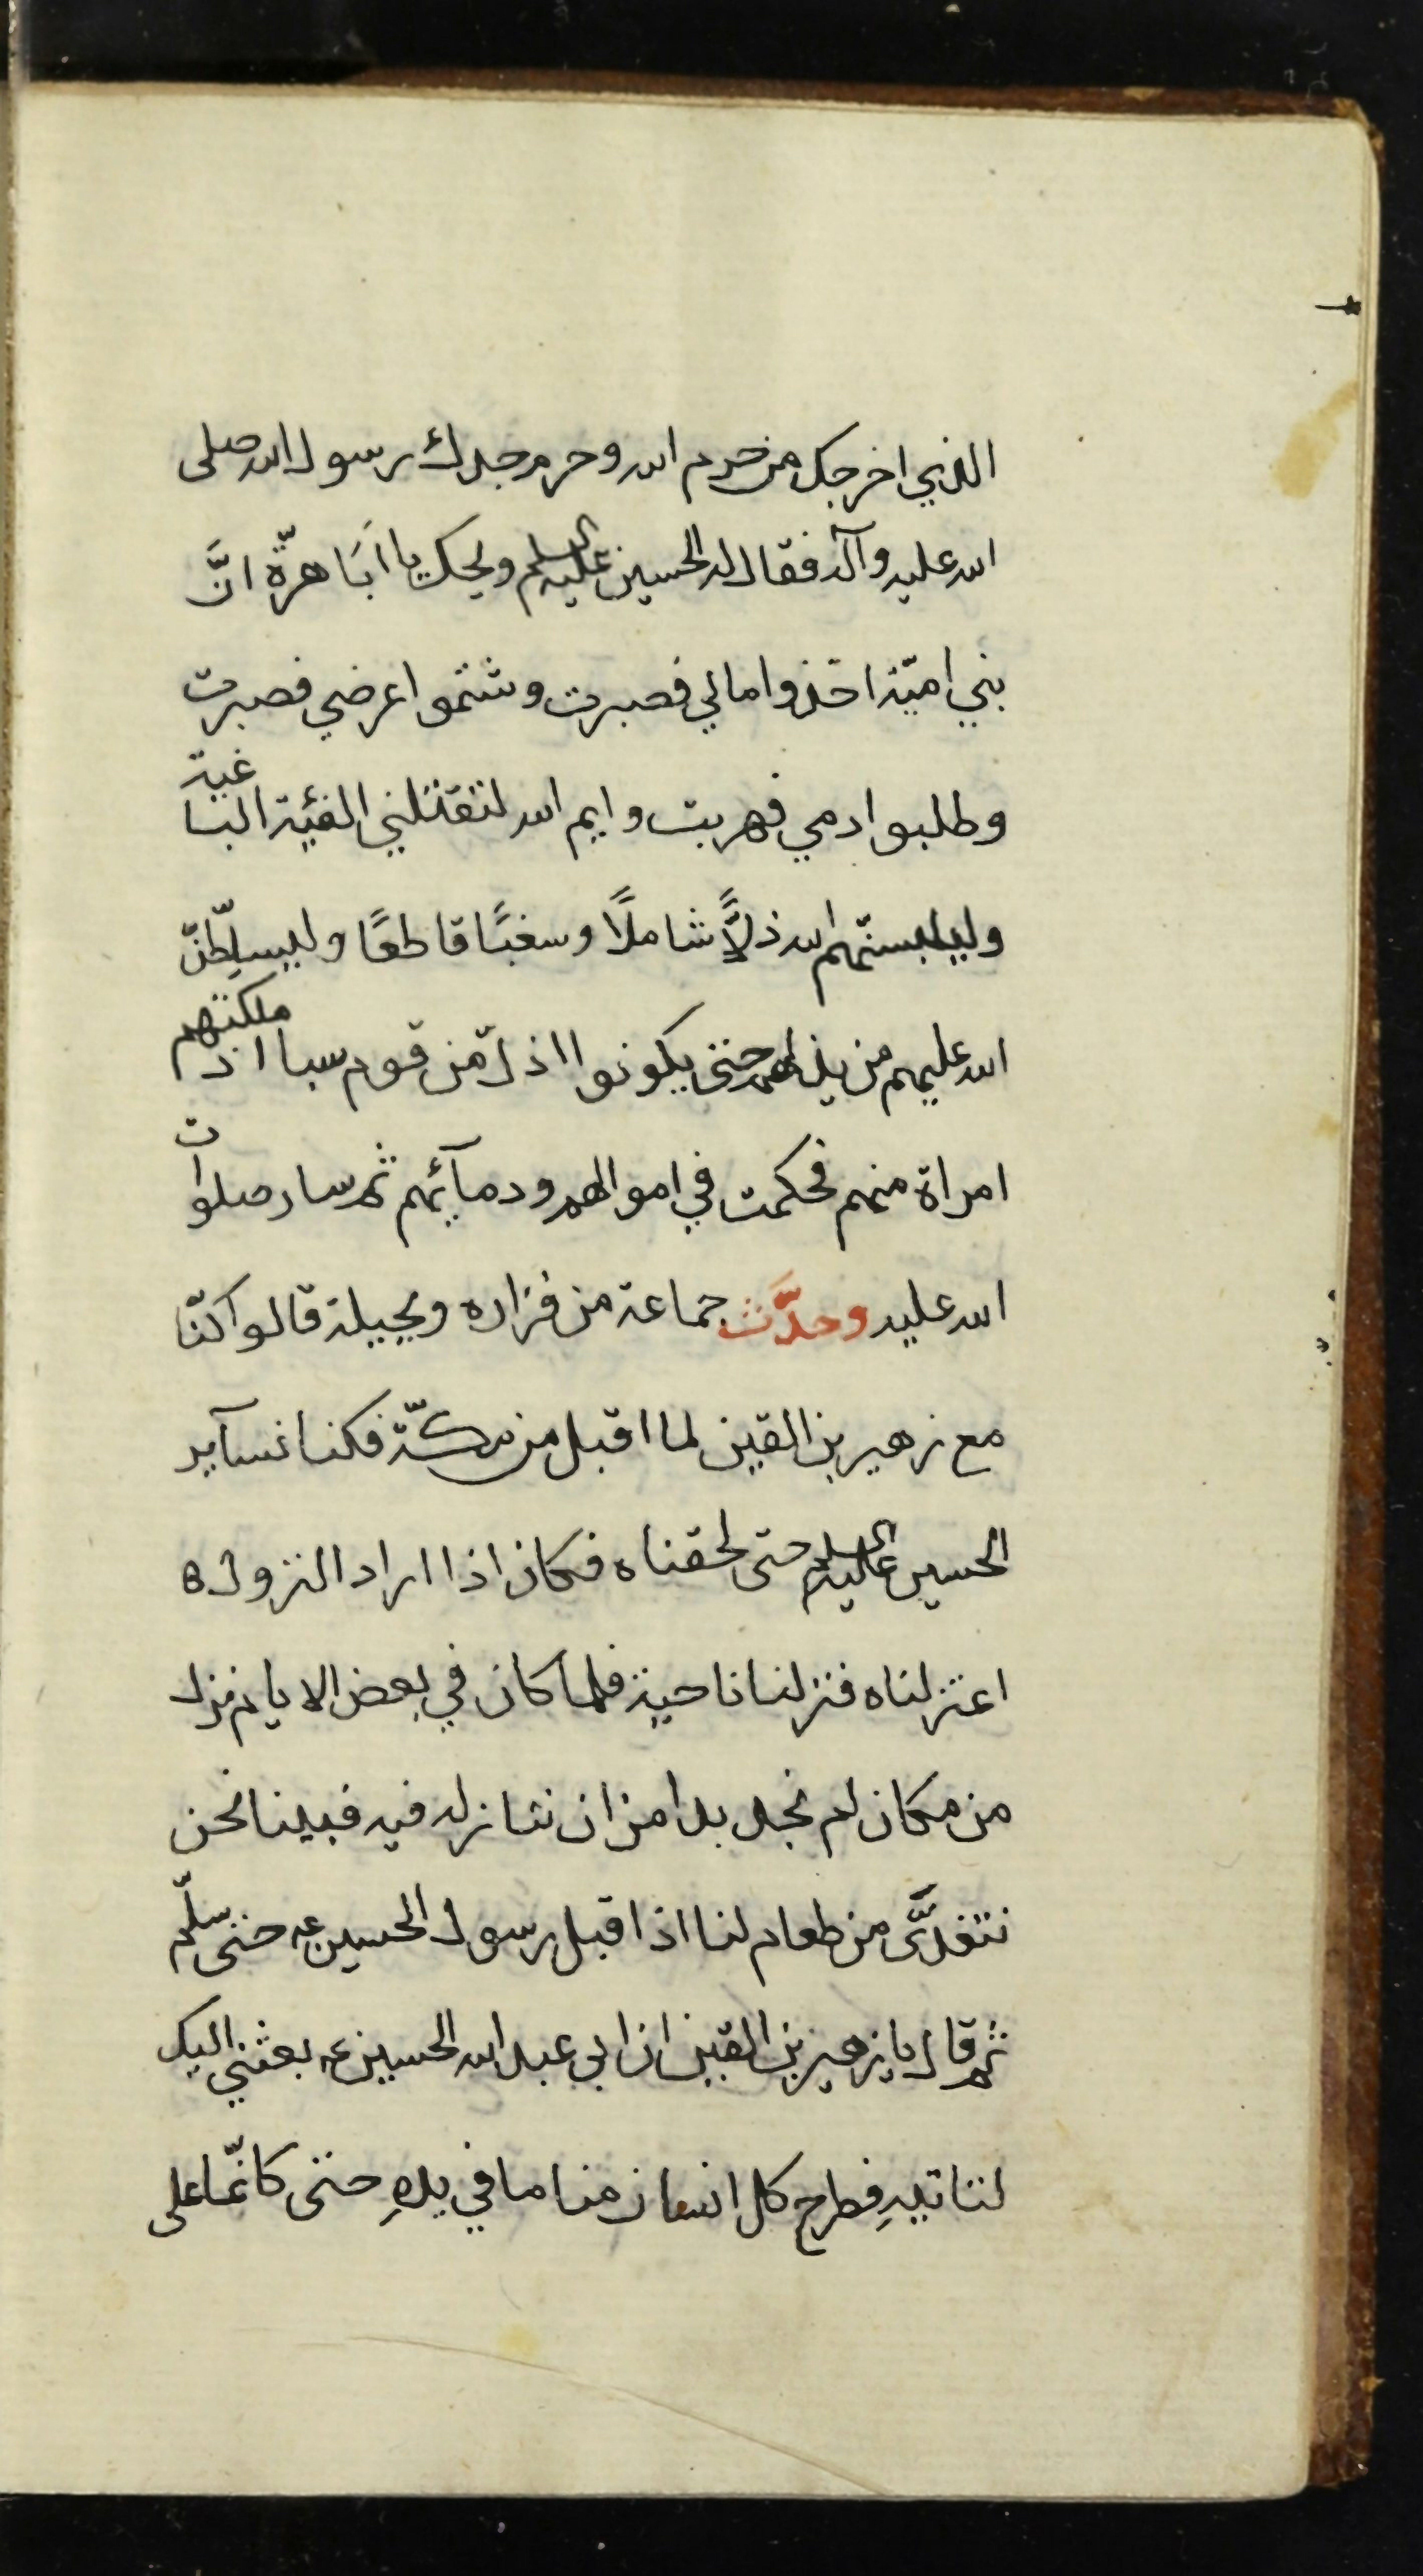 الذي اخرجك من حرم الله وحرم جدك رسول الله صلى
الله عليه وآله فقال له الحسين عليه السلم ويحك يا اَبَا هرّة انَّ
بني اميّة اخذوا مالي فصبرت وشتموا عرضي فصبرت
وطلبوا دمي فهربت وايم الله لتقتلني الفئية الباغية
وليلبسنّهم الله ذلاًّ شاملاً وسغبًا قاطعًا وليسلِّطنّ
الله عليهم من يذلهم حتى يكونوا اذلّ من قوم سبا اذ ملكتهم
امراة منهم فحكمت في اموالهم ودمآئهم ثم سار صلوات
الله عليه وحدَّث جماعة من فزاره وبجيلة قالوا كنّا
مع زهير بن القين لما اقبل من مكّة فكنا نسآير
الحسين عليه السلم حتى لحقناه فكان اذا اراد النزول ه
اعتزلناه فنزلنا ناحية فلما كان في بعض الايام نزل
من مكان لم نجد بدا من ان ننازله فيه فبينا نحن
نتغدَّى من طعام لنا اذ اقبل رسول الحسين عه حتى سلّم
ثم قال يا زهير بن القين ان ابي عبد الله الحسين عه بعثني اليك
لتاتيهِ فطرح كل انسان منا ما في يدهِ حتى كانّما على